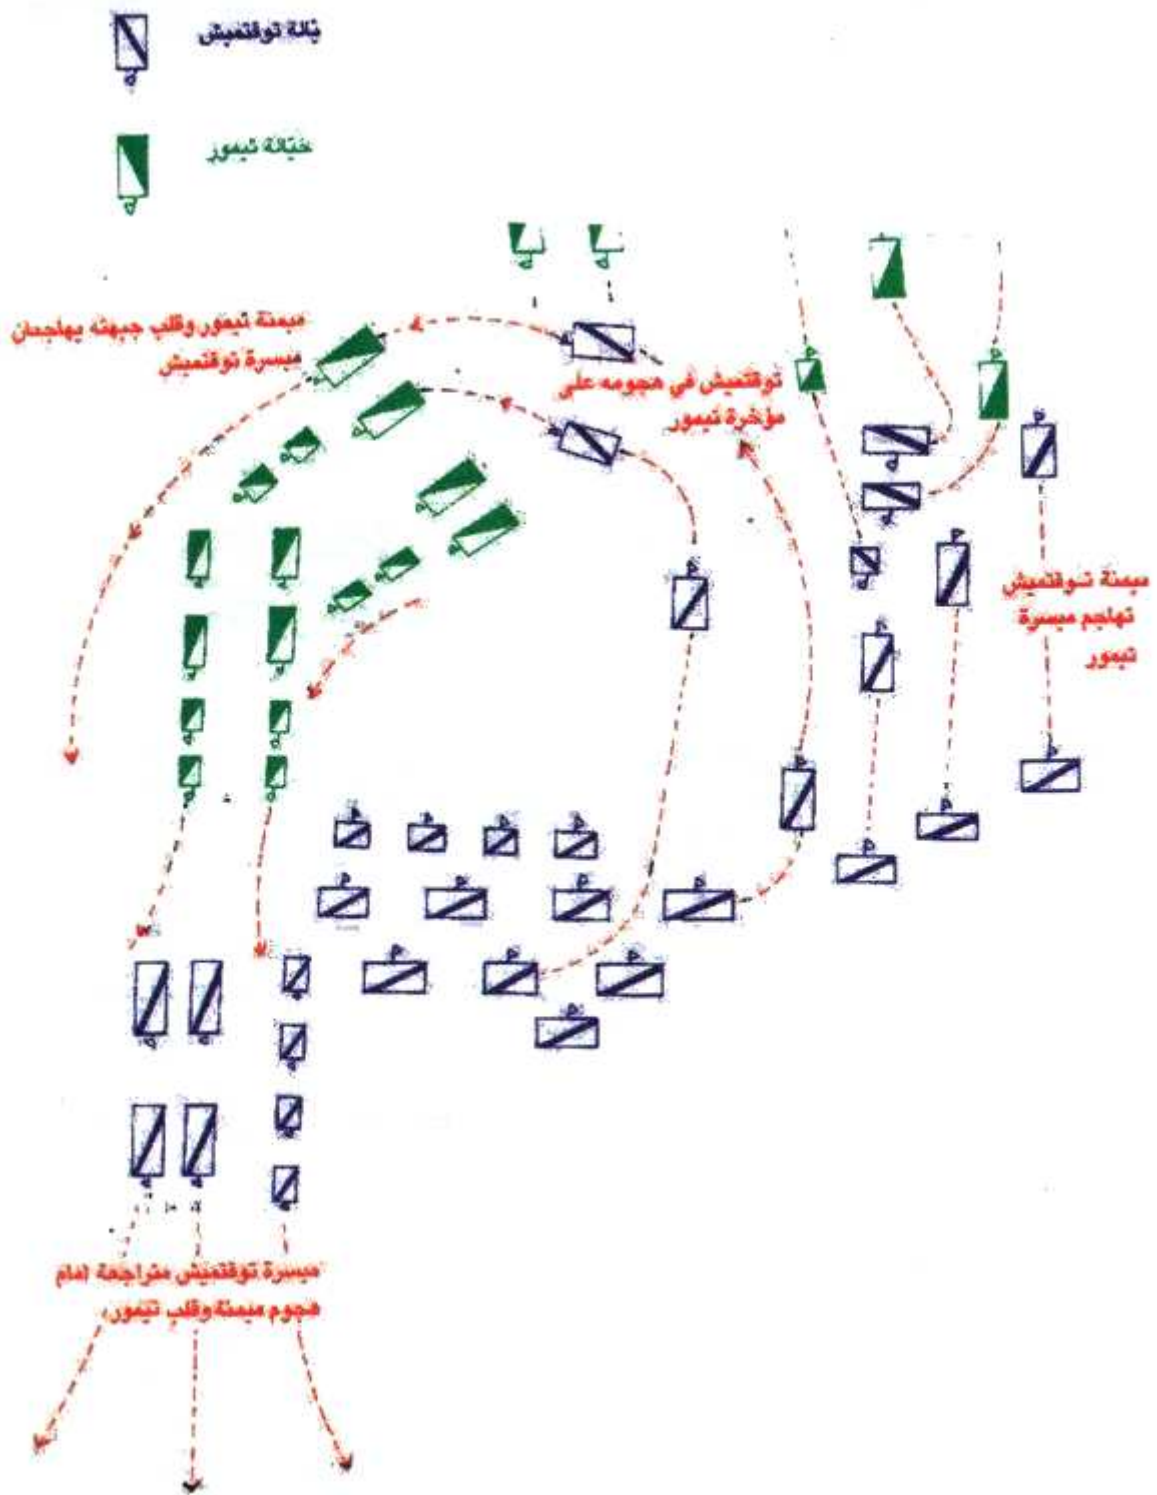 يّالة توقتميش
خيّالة تيمور
ميمنة تيمور وقلب جبهته يهاجمان
ميسرة توقتميش
توقتميش في هجومه على
مؤخرة تيمور
ميمنة توقتميش
تهاجم ميسرة
تيمور
ميسرة توقتميش متراجعة امام
هجوم ميمنة وقلب تيمور،